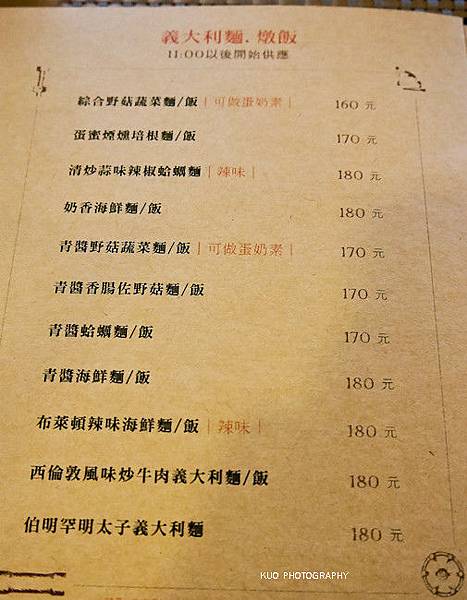 義大利麵. 燉飯
11:00以後開始供應
綜合野菇蔬菜麵/飯｜可做蛋奶素｜ 160 元
蛋蜜煙燻培根麵/飯 170 元
清炒蒜味辣椒蛤蠣麵｜辣味｜ 180 元
奶香海鮮麵/飯 180 元
青醬野菇蔬菜麵/飯｜可做蛋奶素｜ 170 元
青醬香腸佐野菇麵/飯 170 元
青醬蛤蠣麵/飯 170 元
青醬海鮮麵/飯 180 元
布萊頓辣味海鮮麵/飯｜辣味｜ 180 元
西倫敦風味炒牛肉義大利麵/飯 180 元
伯明罕明太子義大利麵 180 元
KUO PHOTOGRAPHY